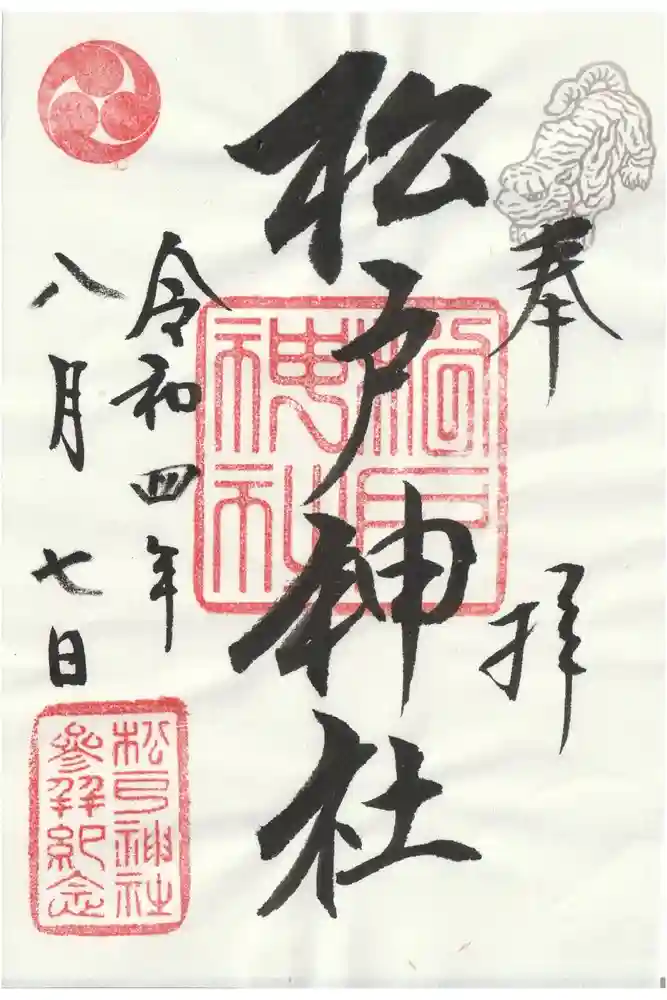 奉拝
松戸神社
松戸神社
令和四年
八月七日
松戸神社
参拝紀念